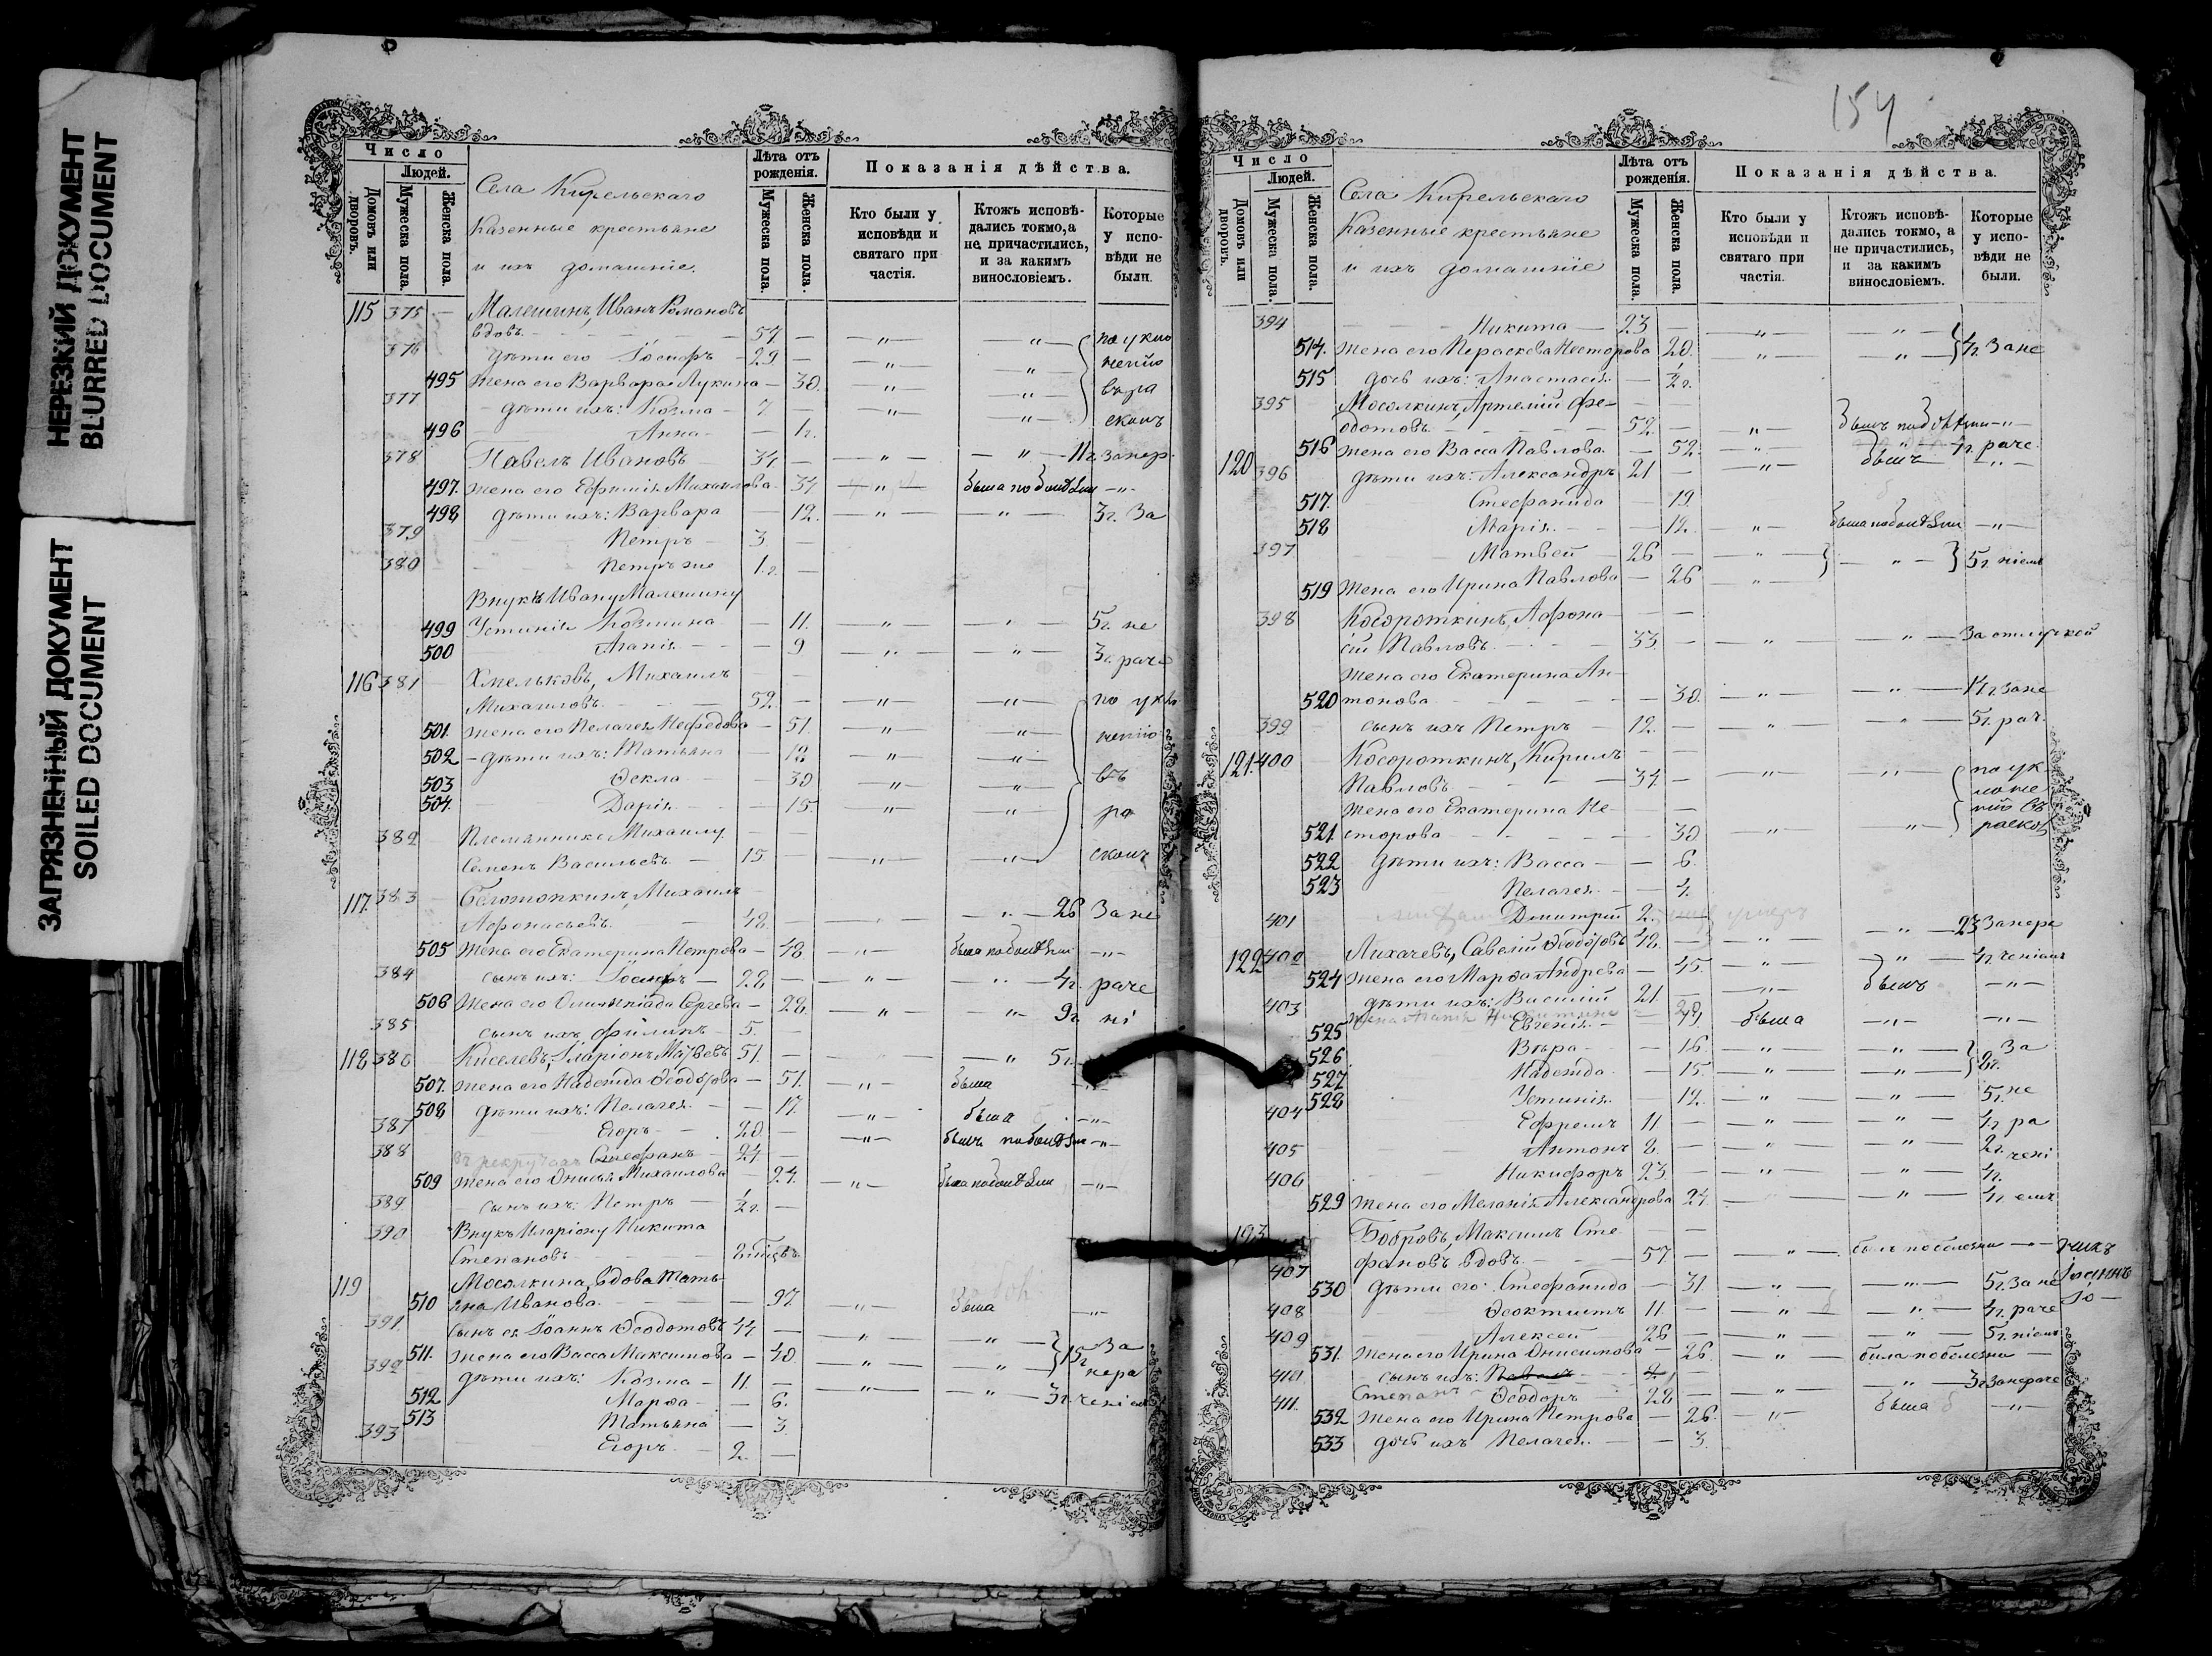 НЕРЕЗКИЙ ДОКУМЕНТ
BLURRED DOCUMENT
ЗАГРЯЗНЕННЫЙ ДОКУМЕНТ
SOILED DOCUMENT
Число
Людей.
Домовъ или дворовъ.
Мужеска пола.
Женска пола.
Села Кирельскаго
Казенные крестьяне
и ихъ домашніе.
Лѣта отъ рожденія.
Мужеска пола.
Женска пола.
Показанія дѣйства.
Кто были у исповѣди и святаго при частія.
Ктожъ исповѣ- дались токмо, а не причастились, и за какимъ винословіемъ.
Которые у испо- вѣди не были.
115 375 — Малешинъ, Иванъ Романовъ
вдовъ — 57 — " — " — по укло
376 дѣти его Іосифъ — 29 — " — " — ненію
495 жена его Варвара Лукина — 30. " — " — въ ра
377 дѣти ихъ: Козма — 7 — " — " — сколъ
496 Анна — 1г.
378 Павелъ Ивановъ — 34. — " — " — 11г. за нер.
497. жена его Ефимія Михаилова — 34 — " — была по болѣзни — " —
498 дѣти ихъ: Варвара — 12. — " — " — 3г. За
379 Петръ — 3 —
380 Петръ же 1.г. —
Внукѣ Ивану Малешину
499 Устинія Козмина — 11. — " — " — 5г. не
500 Агапія — 9 — " — " — 3г. раче
116 381 Хмельковъ, Михаилъ
Михаиловъ — 52. — " — " — по укло
501. жена его Пелагея Нефедова — 51. — " — " — ненію
502 — дѣти ихъ: Татьяна — 18 — " — " —
503 Ѳекла — 30 — " — " — въ
504. Дарія — 15. — " — " — ра
382 Племянникъ Михаилу
Семенъ Васильевъ — 15 — " — " — сколъ
117. 383 — Бѣлотопкинъ, Михаилъ
Афонасьевъ — 48 — " — " — 26 За не
505 жена его Екатерина Петрова — 48 — " — была по болѣзни — " —
384 сынъ ихъ: Іосифъ — 28 — " — " — 4г. раче
506 жена его Олимпіада Сергева — 28. — " — " — 9г. ні
385 сынъ ихъ Филипъ — 5. —
118 386 Киселевъ, Иларіонъ Матвѣевъ 51. — " — 5г.
507. жена его Надежда Ѳеодорова — 51. — " — была
508 дѣти ихъ: Пелагея — 17. — " — была — " —
387 Егоръ — 20. — " — былъ по болѣзни — " —
388 въ рекрутахъ Стефанъ — 24. —
509 жена его Онисья Михаилова — 24. — " — была по болѣзни — " —
389 сынъ ихъ: Петръ — ½г. —
390 Внукъ Иларіону Никита
Степановъ
119 Мосалкина, вдова Тать-
510 яна Иванова — 97. — " — была — " —
391. Сынъ ея Іоаннъ Ѳеодотовъ 44 — " — " —
511. жена его Васса Максимова — 40. — " — " — 15г. За нера
392 дѣти ихъ: Козма — 11. — " — " — 3г. ченіемъ
512 Марѳа — 6.
513 Татьяна — 3.
393 Егоръ — 2. —
154
Число
Людей.
Домовъ или дворовъ.
Мужеска пола.
Женска пола.
Села Кирельскаго
Казенные крестьяне
и ихъ домашніе
Лѣта отъ рожденія.
Мужеска пола.
Женска пола.
Показанія дѣйства.
Кто были у исповѣди и святаго при частія.
Ктожъ исповѣ- дались токмо, а не причастились, и за какимъ винословіемъ.
Которые у испо- вѣди не были.
394 Никита — 23 — " — " —
514. жена его Параскева Нестерова 20. — " — " — 4г. За не
515 дочь ихъ: Анастасія — ½г.
395 Мосалкинъ, Артемій Фе-
дотовъ — 52. — " — былъ по болѣзни — " —
516 жена его Васса Павлова. — 52. — " — " — 4г. раче.
120 396 дѣти ихъ: Александръ 21 — " — былъ — " —
517. Стефанида — 19.
518 Марія — 12. — " — была по болѣзни — " —
397 Матвей — 26 — " — " — 5г. ніемъ
519 жена его Ирина Павлова — 26 — " —
398 Косороткинъ, Афона-
сій Павловъ — 33. — " — " — За отлучкой
Жена его Екатерина Ан-
520 тонова — 30. — " — " — 14г. За не
399 сынъ ихъ Петръ — 12. — " — " — 5г. рач.
121. 400 Косороткинъ, Кирилъ
Павловъ — 34. — " — " — по ук
Жена его Екатерина Не- лоне
нію въ
521 сторова — 30 — " — " — раскол
522 дѣти ихъ: Васса — 6.
523 Пелагея — 4.
401 Дмитрій 2. — умеръ
122 402 Лихачевъ, Савелій Ѳеодоровъ 48. — " — " — 23 За нера
524 жена его Марѳа Андрева — 45. — " — " — 4г. ченіемъ
403 дѣти ихъ: Василій 21. — " — былъ — " —
525 Евгенія — 19. была — " — " —
526 Вѣра — 16. — " — " — За
527 Надежда — 15. — " — " — 2г.
528 Устинія — 12. — " — " — 5г. не
404 Ефремъ 11 — " — " — 4г. ра
405 Антонъ 8. — " — " — 2г. чені
406 Никифоръ 23. — " — " — 4г.
529 жена его Меланія Александрова 24. — " — 4г. емъ
123 Бобровъ, Максимъ Сте-
407 фановъ вдовъ — 57 — " — былъ по болезни — " —
530 дѣти его: Стефанида — 31. — " — " — 5г. За не
408 Ѳеоктистъ 11. — " — " — 4г. раче
409 Алексей 26 — " — " — 5г. ніемъ
531. Жена его Ирина Онисимова — 26. — " — была по болезни —
410 сынъ ихъ: Павелъ — 4
411. Степанъ Ѳеодоръ — 28 — " — " — 3г. За нераче
532 жена его Ирина Петрова — 26. — " — была — " —
533 дочь ихъ Пелагея — 3.